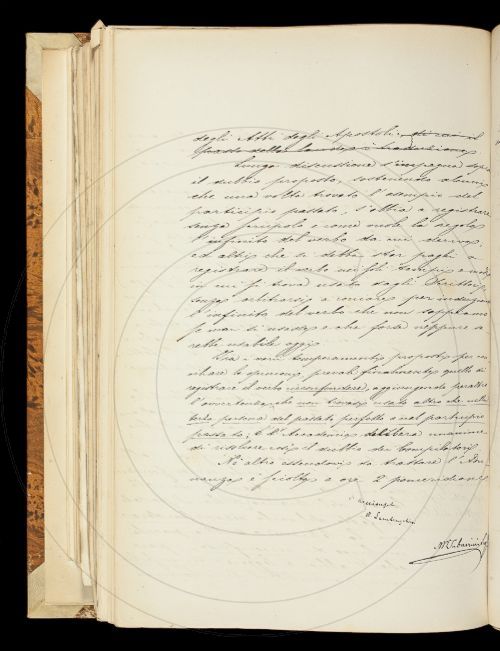 degli Atti degli Apostoli. di cui il
passo della
Lunga discussione s'impegna sopra
il dubbio proposto, sostenendo alcuni
che una volta trovato l'esempio del
participio passato, s'abbia a registrare
senza scrupolo e come vuole la regola
l'infinito del verbo da cui deriva,
ed altri che si debba star paghi a
registrare il verbo nei soli tempi e modi
in cui si trova usato dagli Scrittori
senza arbitrarsi a coniare per induzione
l'infinito del verbo che non sappiamo
se mai si usasse e che forse neppure sa-
rebbe usabile oggi.
Tra i vari temperamenti proposti per con
ciliare le opinioni prevale finalmente quello di
registrare il verbo aggiungendo peraltro
l'avvertenza che non trovasi usato altro che nella
terza persona del passato perfetto e nel participio
passato; e l'Accademia delibera unanime
di risolvere così il dubbio dei Compilatori.
Nè altro essendovi da trattare l'Adu-
nanza è sciolta a ore 2 pomeridiane